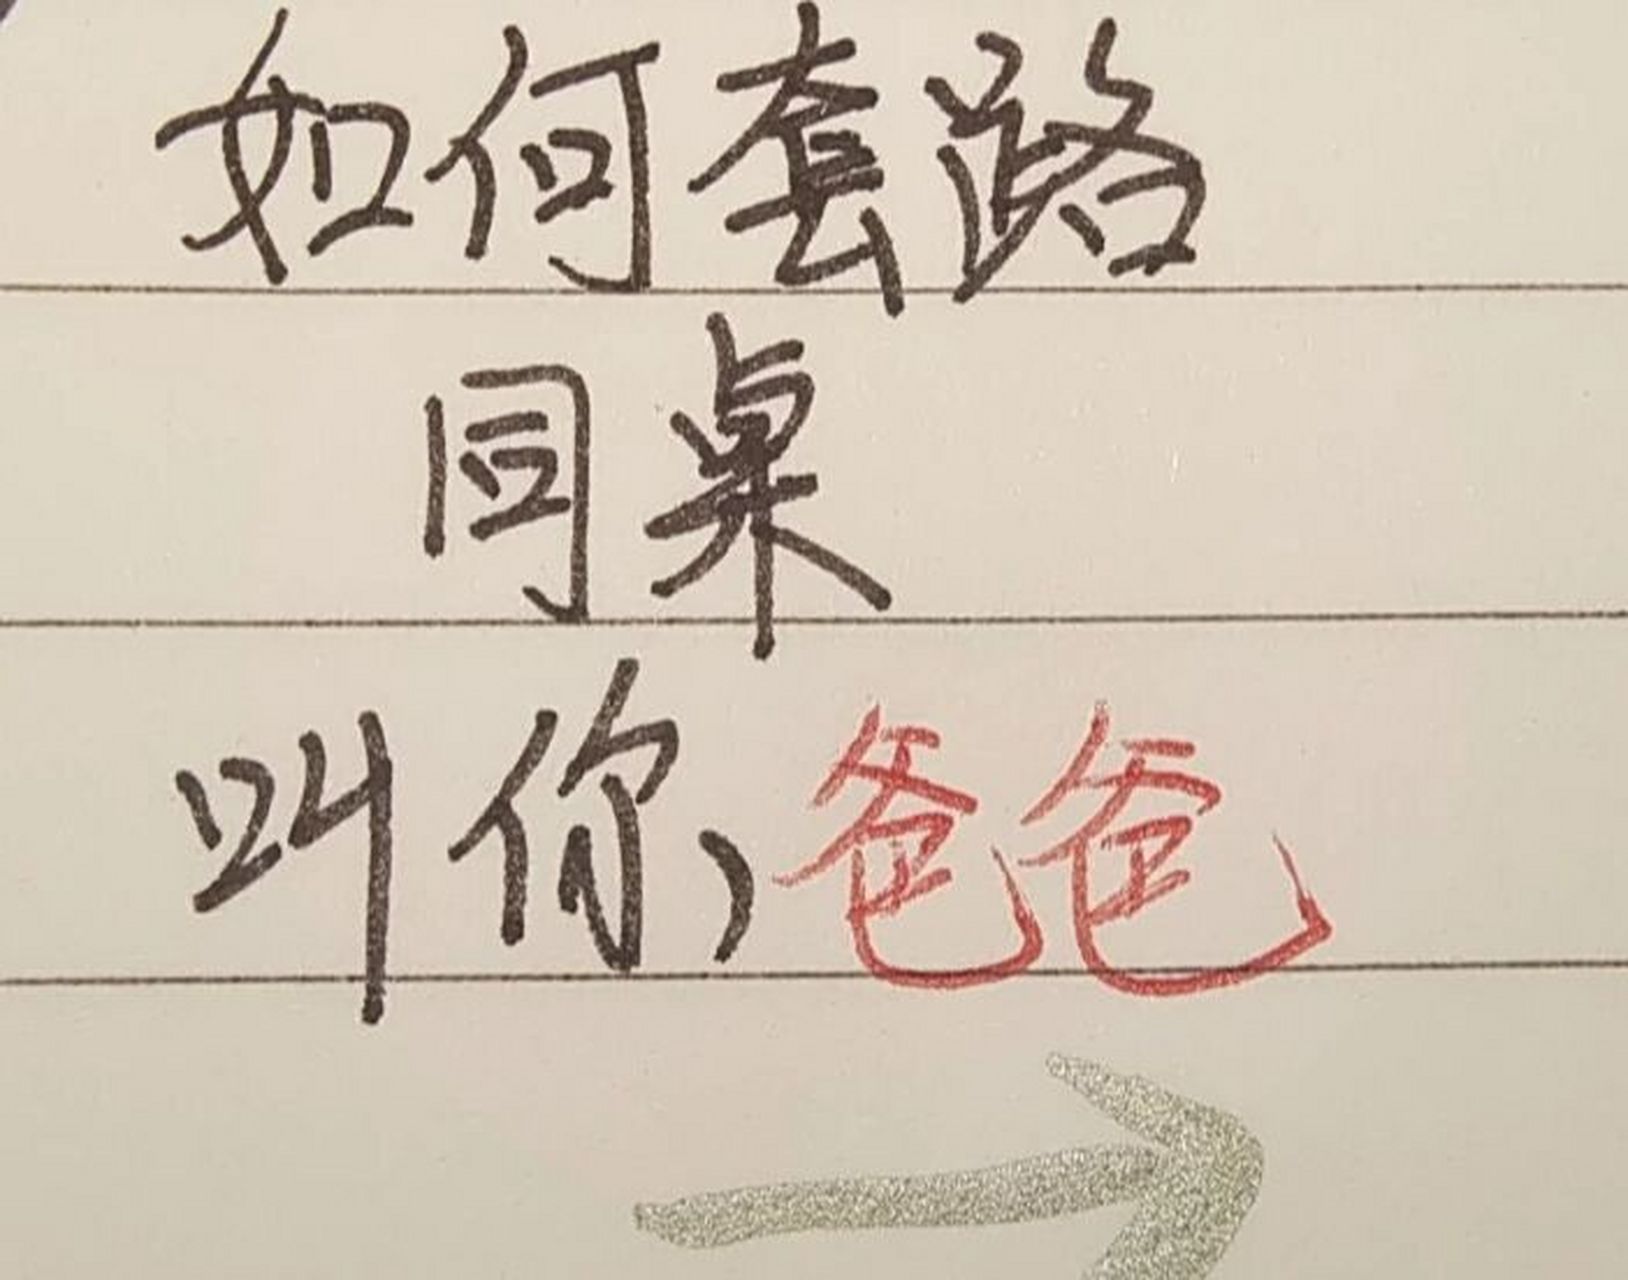 如何套路
同桌
叫你，爸爸